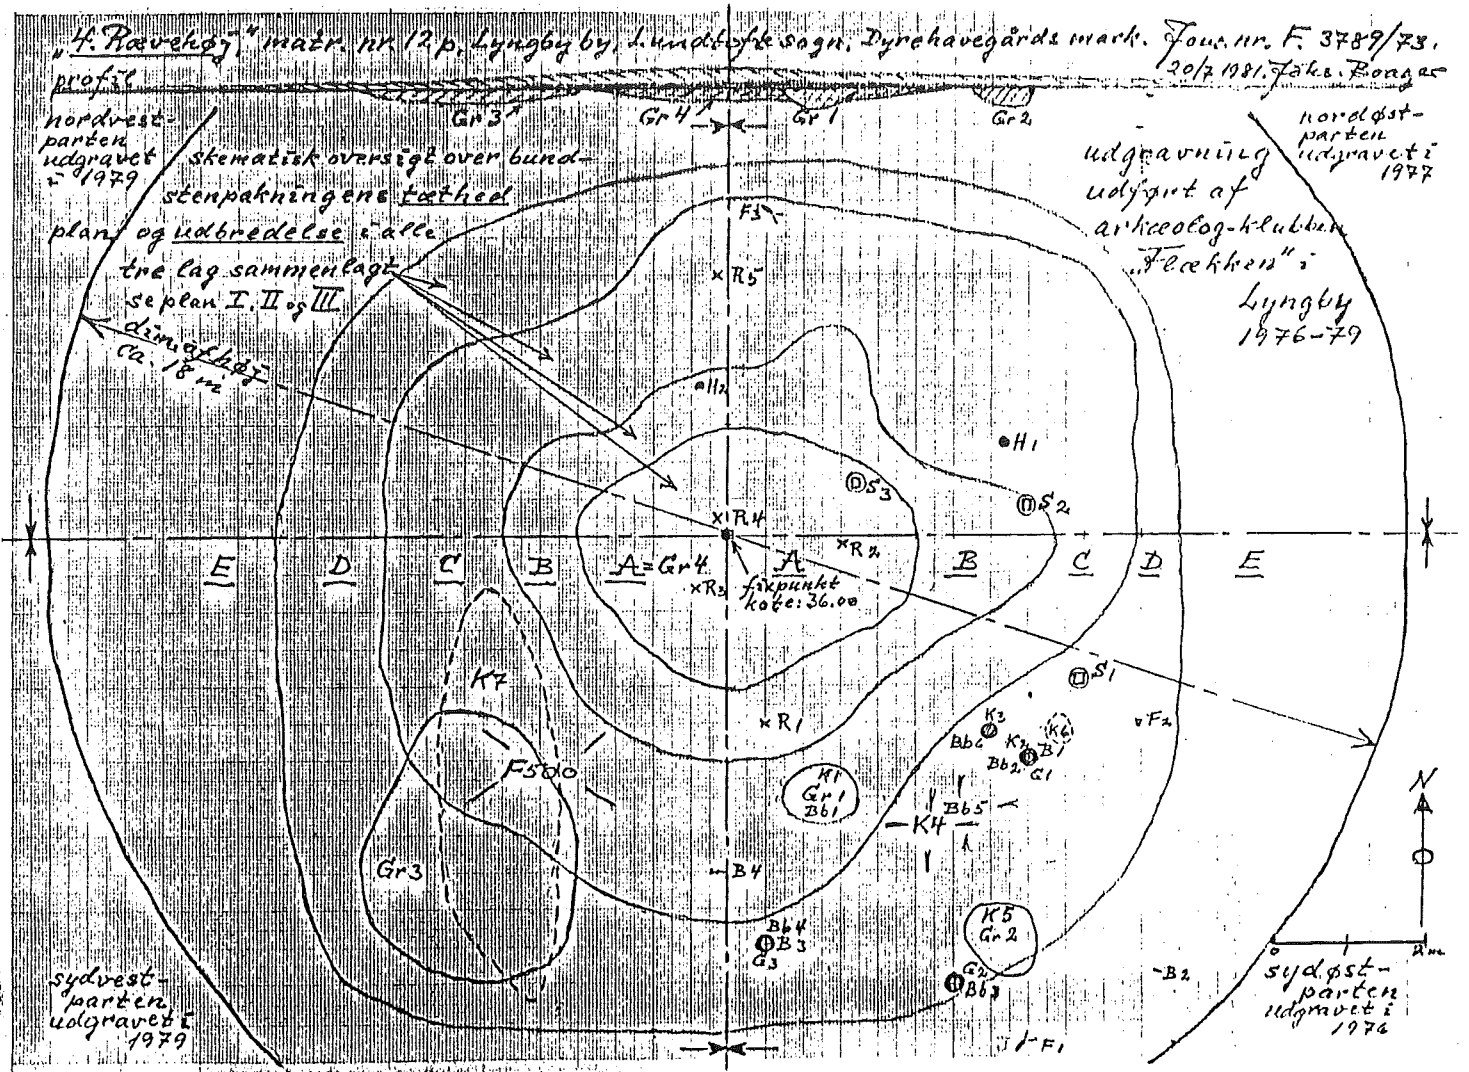 "4. Rævehøj," matr. nr. 12p, Lyngby by, Lundtofte sogn, Dyrehavegårds mark. Jour. nr. F. 3789/73.
20/7 1981.
profil
Gr3 Gr4 Gr1 Gr2
nordvest-
parten
udgravet
i 1979
skematisk oversigt over bund-
stenpakningens tæthed
plan og udbredelse i alle
tre lag sammenlagt
se plan I, II og III
nordøst-
parten
udgravet i
1977
udgravning
udført af
arkæolog-klubben
"Flækken" i
Lyngby
1976-79
diam. af høj
ca. 18 m
F3
R5
H2
H1
S3
S2
R4
R2
E D C B A=Gr4 A B C D E
R3
fixpunkt
kote: 36.00
K7
S1
R1
K3
Bb6
K6
F2
K2
B1
Bb2
G1
F500
K1
Gr1
Bb1
Bb5
K4
Gr3
B4
N
Bb4
B3
G3
K5
Gr2
G2
Bb3
B2
0 2m
sydvest-
parten
udgravet i
1979
sydøst-
parten
udgravet i
1976
F1